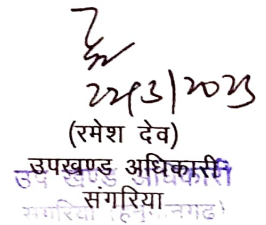 22/3/2023
(रमेश देव)
उपखण्ड अधिकारी
उप खण्ड अधिकारी
संगरिया
संगरिया (हनुमानगढ)